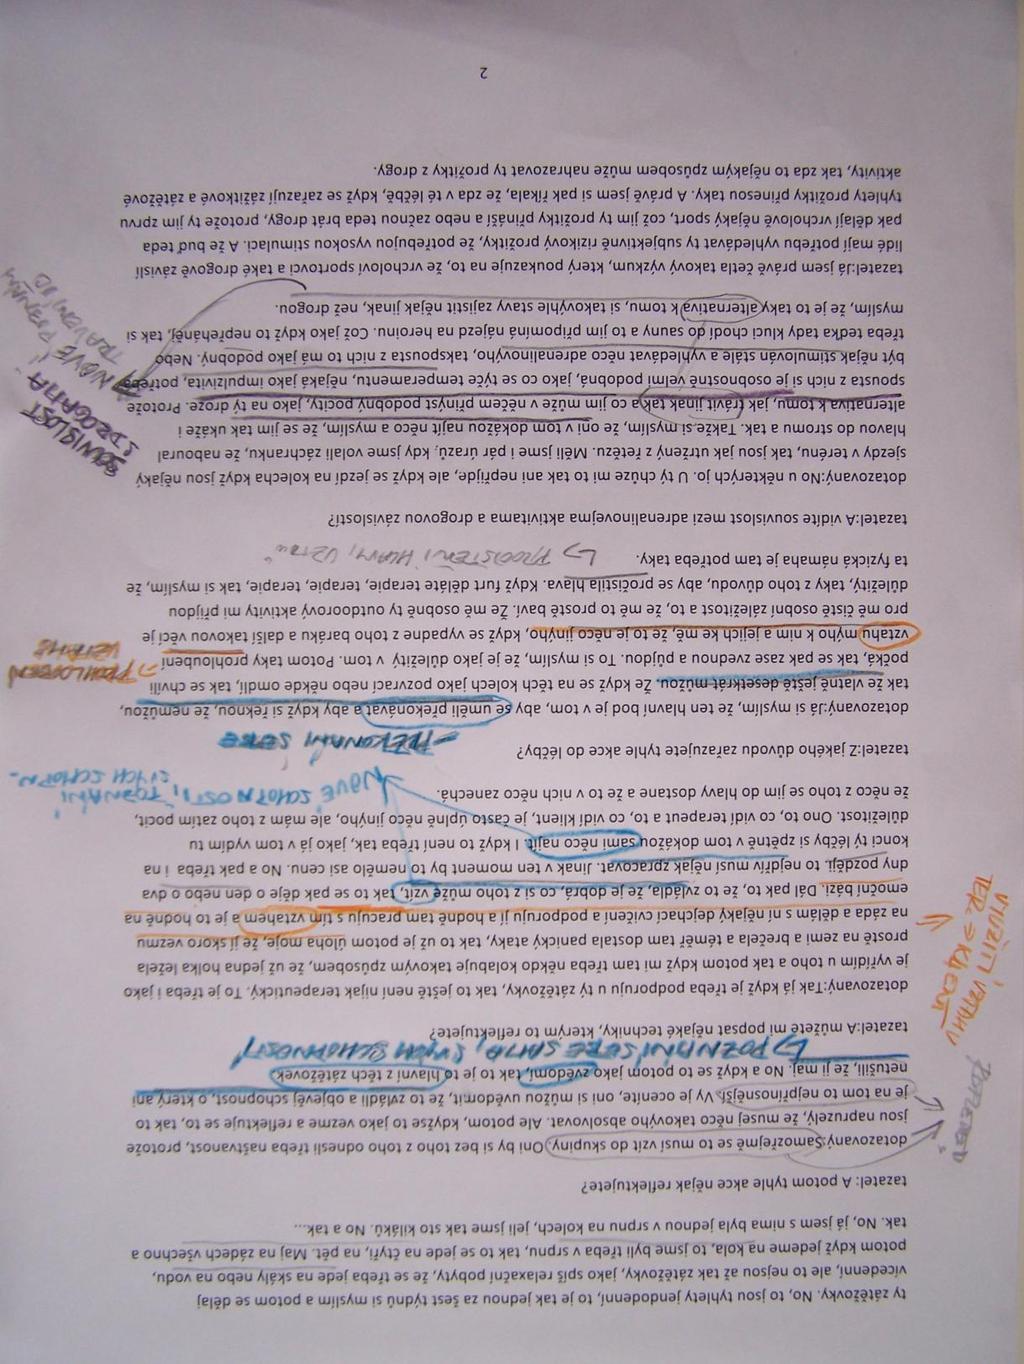 ty zátěžovky. No, to jsou tyhlety jendodenní, to je tak jednou za šest týdnů si myslím a potom se dělaj
vícedenní, ale to nejsou až tak zátěžovky, jako spíš relaxační pobyty, že se třeba jede na skály nebo na vodu,
potom když jedeme na kola, to jsme byli třeba v srpnu, tak to se jede na čtyři, na pět. Maj na zádech všechno a
tak. No, já jsem s nima byla jednou v srpnu na kolech, jeli jsme tak sto kiláků. No a tak...
tazatel: A potom tyhle akce nějak reflektujete?
dotazovaný:Samozřejmě se to musí vzít do skupiny. Oni by si bez toho z toho odnesli třeba naštvanost, protože
jsou napruzelý, že musej něco takovýho absolvovat. Ale potom, kdyžse to jako vezme a reflektuje se to, tak to
je na tom to nejpřínosnější. Vy je oceníte, oni si můžou uvědomit, že to zvládli a objevěj schopnost, o který ani
netušili, že ji maj. No a když se to potom jako zvědomí, tak to je to hlavní z těch zátěžovek.
"POTŘEBA"
↳ POZNÁNÍ SEBE SAMA, SVÝCH SCHOPNOSTÍ
tazatel:A můžete mi popsat nějaké techniky, kterým to reflektujete?
dotazovaný:Tak já když je třeba podporuju u tý zátěžovky, tak to ještě není nijak terapeutický. To je třeba i jako
je vyřídím u toho a tak potom když mi tam třeba někdo kolabuje takovým způsobem, že už jedna holka ležela
prostě na zemi a brečela a téměř tam dostala panický ataky, tak to už je potom úloha moje, že ji skoro vezmu
na záda a dělám s ní nějaký dejchací cvičení a podporuju jí a hodně tam pracuju s tím vztahem a je to hodně na
emoční bázi. Dál pak to, že to zvládla, že je dobrá, co si z toho může vzít, tak to se pak děje o den nebo o dva
dny později. to nejdřív musí nějak zpracovat. Jinak v ten moment by to nemělo asi cenu. No a pak třeba i na
konci ty léčby si zpětně v tom dokážou sami něco najít. I když to není třeba tak, jako já v tom vydím tu
důležitost. Ono to, co vidí terapeut a to, co vidí klient, je často úplně něco jinýho, ale mám z toho zatím pocit,
že něco z toho se jim do hlavy dostane a že to v nich něco zanechá.
VYUŽITÍ VZTAHU
TER. → KLIENT
"NOVÉ SCHOPNOSTI", POZNÁNÍ
tazatel:Z jakého důvodu zařazujete tyhle akce do léčby?
- PŘEKONÁNÍ SEBE
dotazovaný:Já si myslím, že ten hlavní bod je v tom, aby se uměli překonávat a aby když si řeknou, že nemůžou,
tak že vlatně ještě desetkrát můžou. Že když se na těch kolech jako pozvrací nebo někde omdlí, tak se chvíli
počká, tak se pak zase zvednou a půjdou. To si myslím, že je jako důležitý v tom. Potom taky prohloubení
vztahu mýho k nim a jejich ke mě, že to je něco jinýho, když se vypadne z toho baráku a další takovou věcí je
pro mě čistě osobní záležitost a to, že mě to prostě baví. Že mě osobně ty outdoorový aktivity mi přijdou
důležitý, taky z toho důvodu, aby se pročistila hlava. Když furt děláte terapie, terapie, terapie, tak si myslím, že
ta fyzická námaha je tam potřeba taky.
→ PROHLOUBENÍ
VZTAHŮ
↳ PROČIŠTĚNÍ HLAVY,
tazatel:A vidíte souvislost mezi adrenalinovejma aktivitama a drogovou závislostí?
dotazovaný:No u některých jo. U tý chůze mi to tak ani nepřijde, ale když se jezdí na kolecha když jsou nějaký
sjezdy v terénu, tak jsou jak utržený z řetězu. Měli jsme i pár úrazů, kdy jsme volali záchranku, že naboural
hlavou do stromu a tak. Takže si myslím, že oni v tom dokážou najít něco a myslím, že se jim tak ukáže i
alternativa k tomu, jak trávit jinak tak a co jim může v něčem přinýst podobný pocity, jako na tý droze. Protože
spousta z nich si je osobnostně velmi podobná, jako co se týče temperamentu, nějaká jako impulzivita, potřeba
být nějak stimulován stále a vyhledávat něco adrenalinovýho, takspousta z nich to má jako podobný. Nebo
třeba teďka tady kluci chodí do sauny a to jim připomíná nájezd na heroinu. Což jako když to nepřeháněj, tak si
myslím, že je to taky alternativa k tomu, si takovýhle stavy zajistit nějak jinak, než drogou.
SOUVISLOST
S DROGAMA
tazatel:Já jsem právě četla takový výzkum, který poukazuje na to, že vrcholoví sportovci a také drogově závislí
lidé mají potřebu vyhledávat ty subjektivně rizikový prožitky, že potřebujou vysokou stimulaci. A že buď teda
pak dělají vrcholově nějaký sport, což jim ty prožitky přináší a nebo začnou teda brát drogy, protože ty jim zprvu
tyhlety prožitky přinesou taky. A právě jsem si pak říkala, že zda v té léčbě, když se zařazují zážitkové a zátěžové
aktivity, tak zda to nějakým způsobem může nahrazovat ty prožitky z drogy.
2